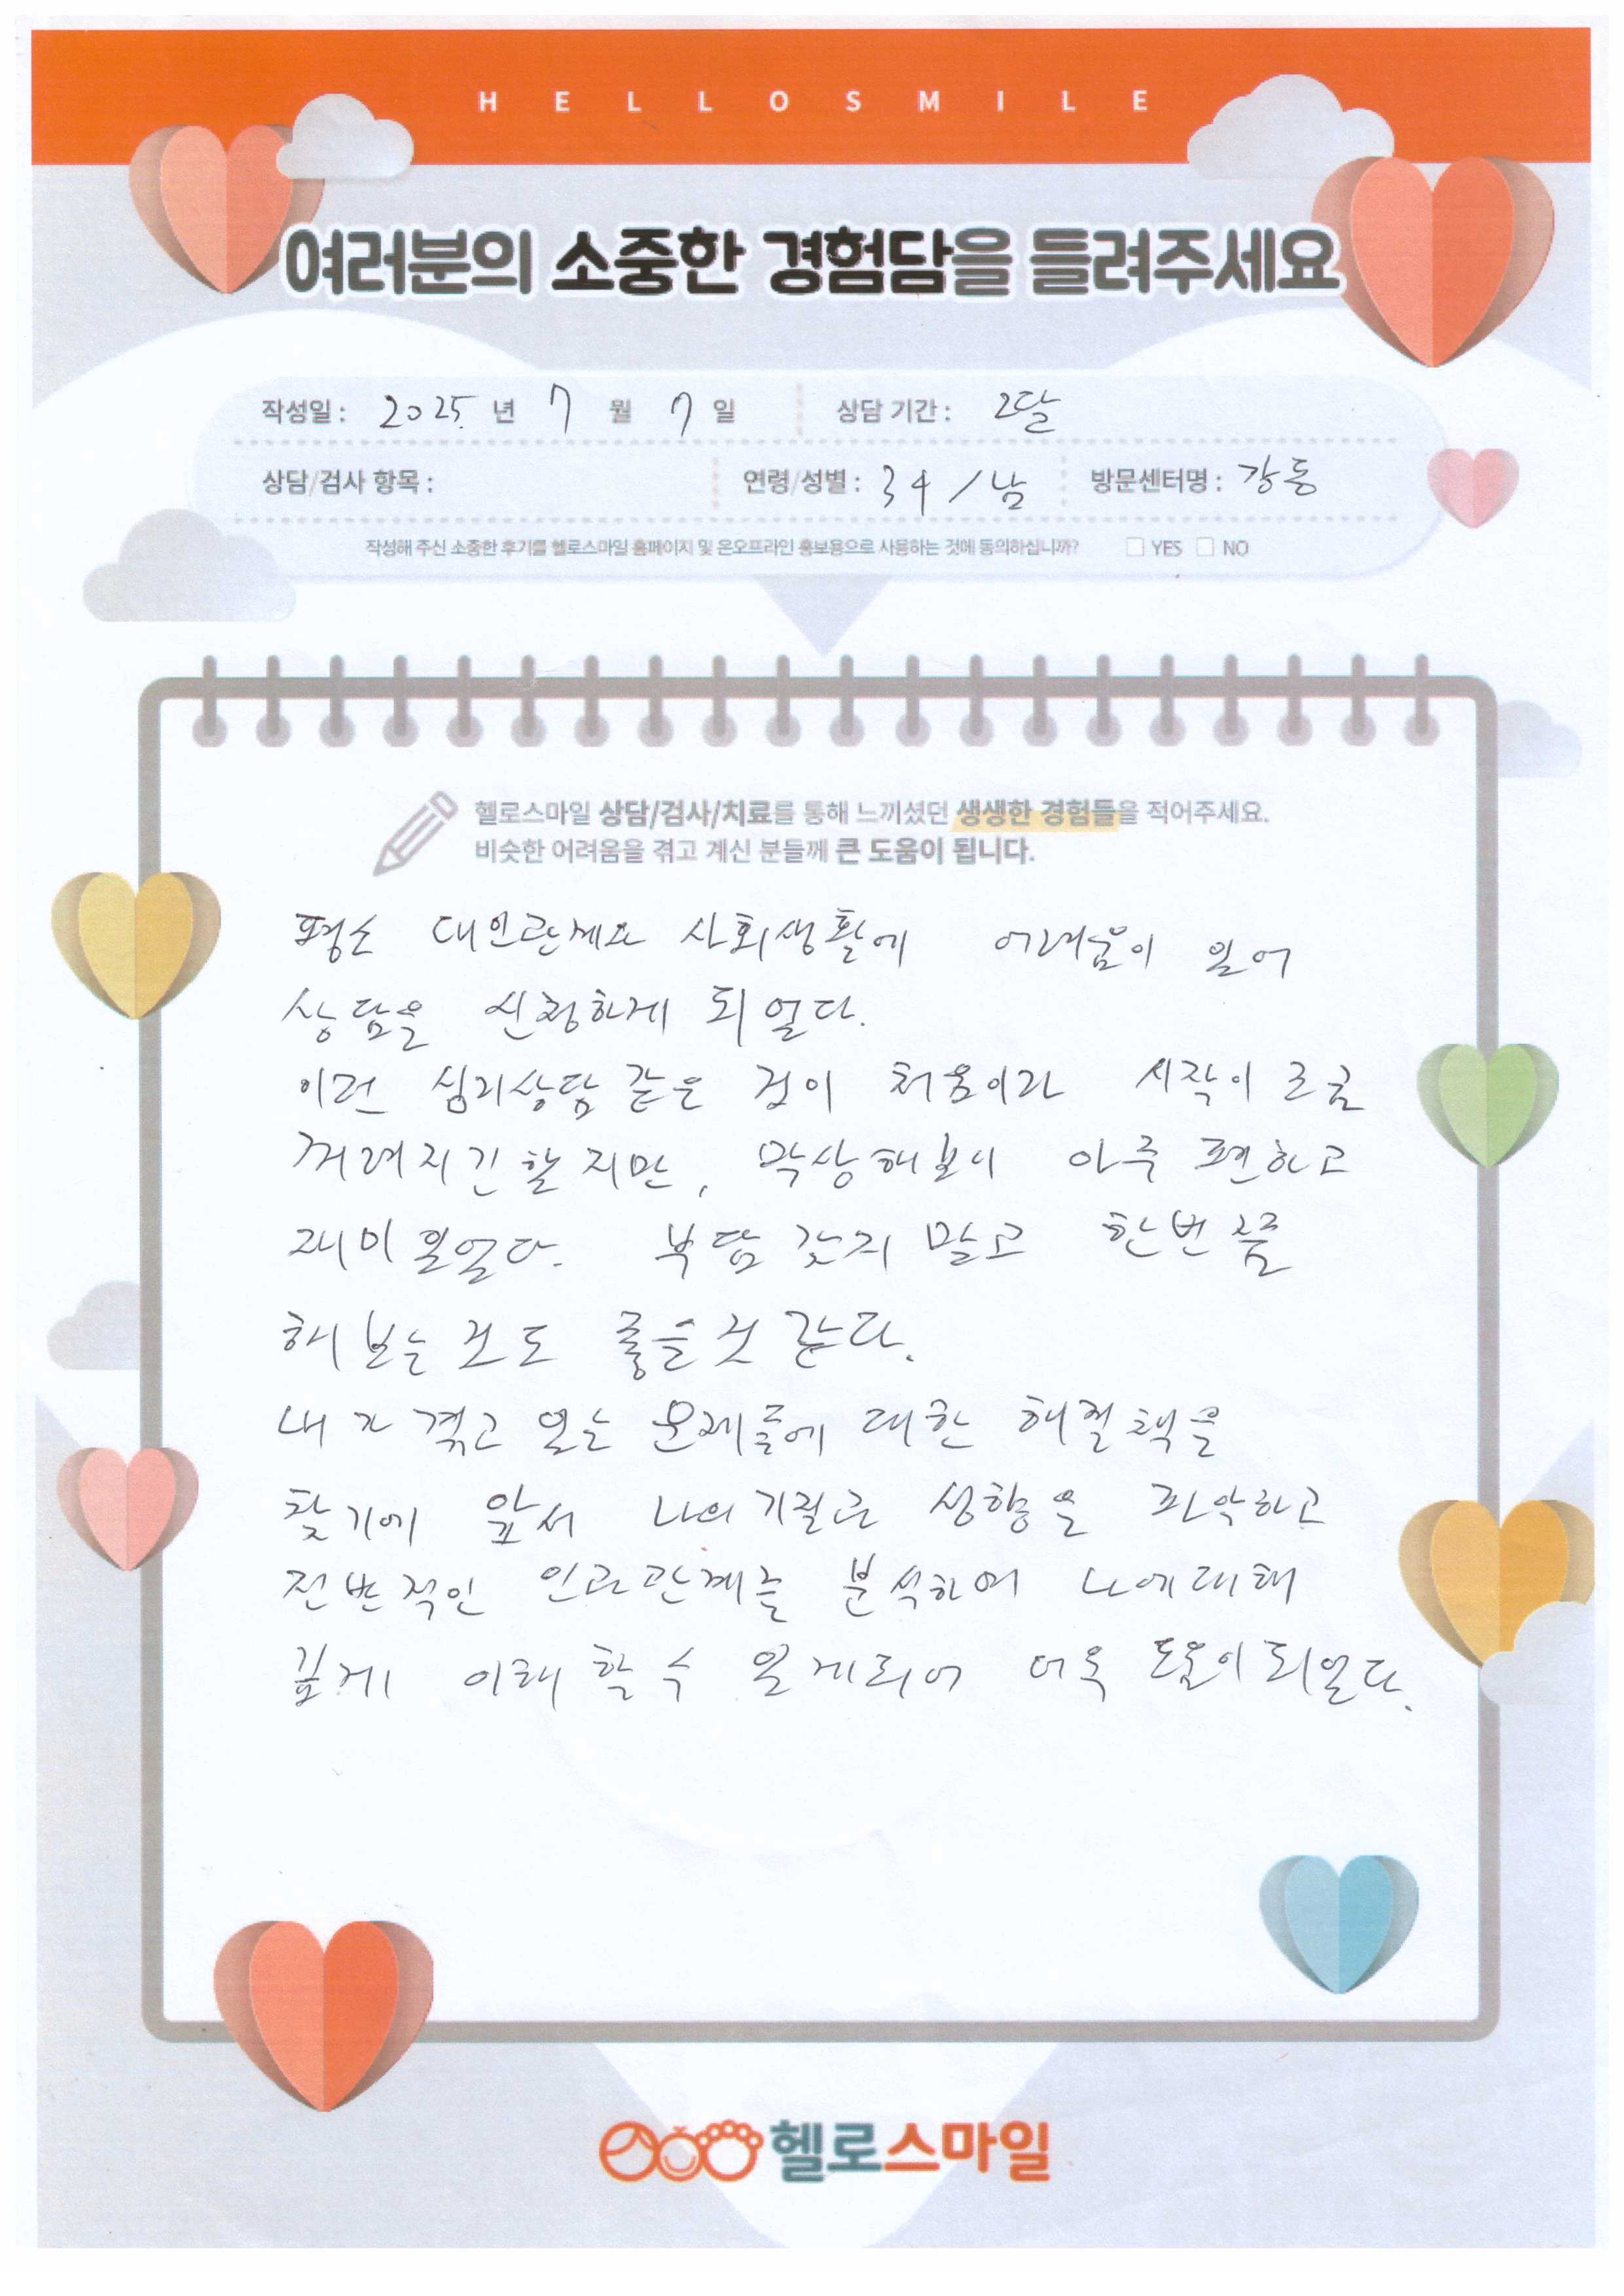 HELLOSMILE
여러분의 소중한 경험담을 들려주세요
작성일 : 2025. 년 7 월 7 일 상담 기간 : 2달
상담/검사 항목 : 연령/성별 : 34 / 남 방문센터명 : 강동
작성해 주신 소중한 후기를 헬로스마일 홈페이지 및 온오프라인 홍보용으로 사용하는 것에 동의하십니까? YES NO
헬로스마일 상담/검사/치료를 통해 느끼셨던 생생한 경험들을 적어주세요.
비슷한 어려움을 겪고 계신 분들께 큰 도움이 됩니다.
평소 대인관계와 사회생활에 어려움이 있어
상담을 신청하게 되었다.
이런 심리상담 같은 것이 처음이라 시작이 조금
꺼려지긴 했지만, 막상해보니 아주 편하고
재미있었다. 부담 갖지 말고 한번쯤
해보는 것도 좋을것 같다.
내가 겪고 있는 문제들에 대한 해결책을
찾기에 앞서 나의 기질과 성향을 파악하고
전반적인 인과관계를 분석하여 나에대해
깊게 이해 할 수 있게되어 더욱 도움이 되었다.
헬로스마일